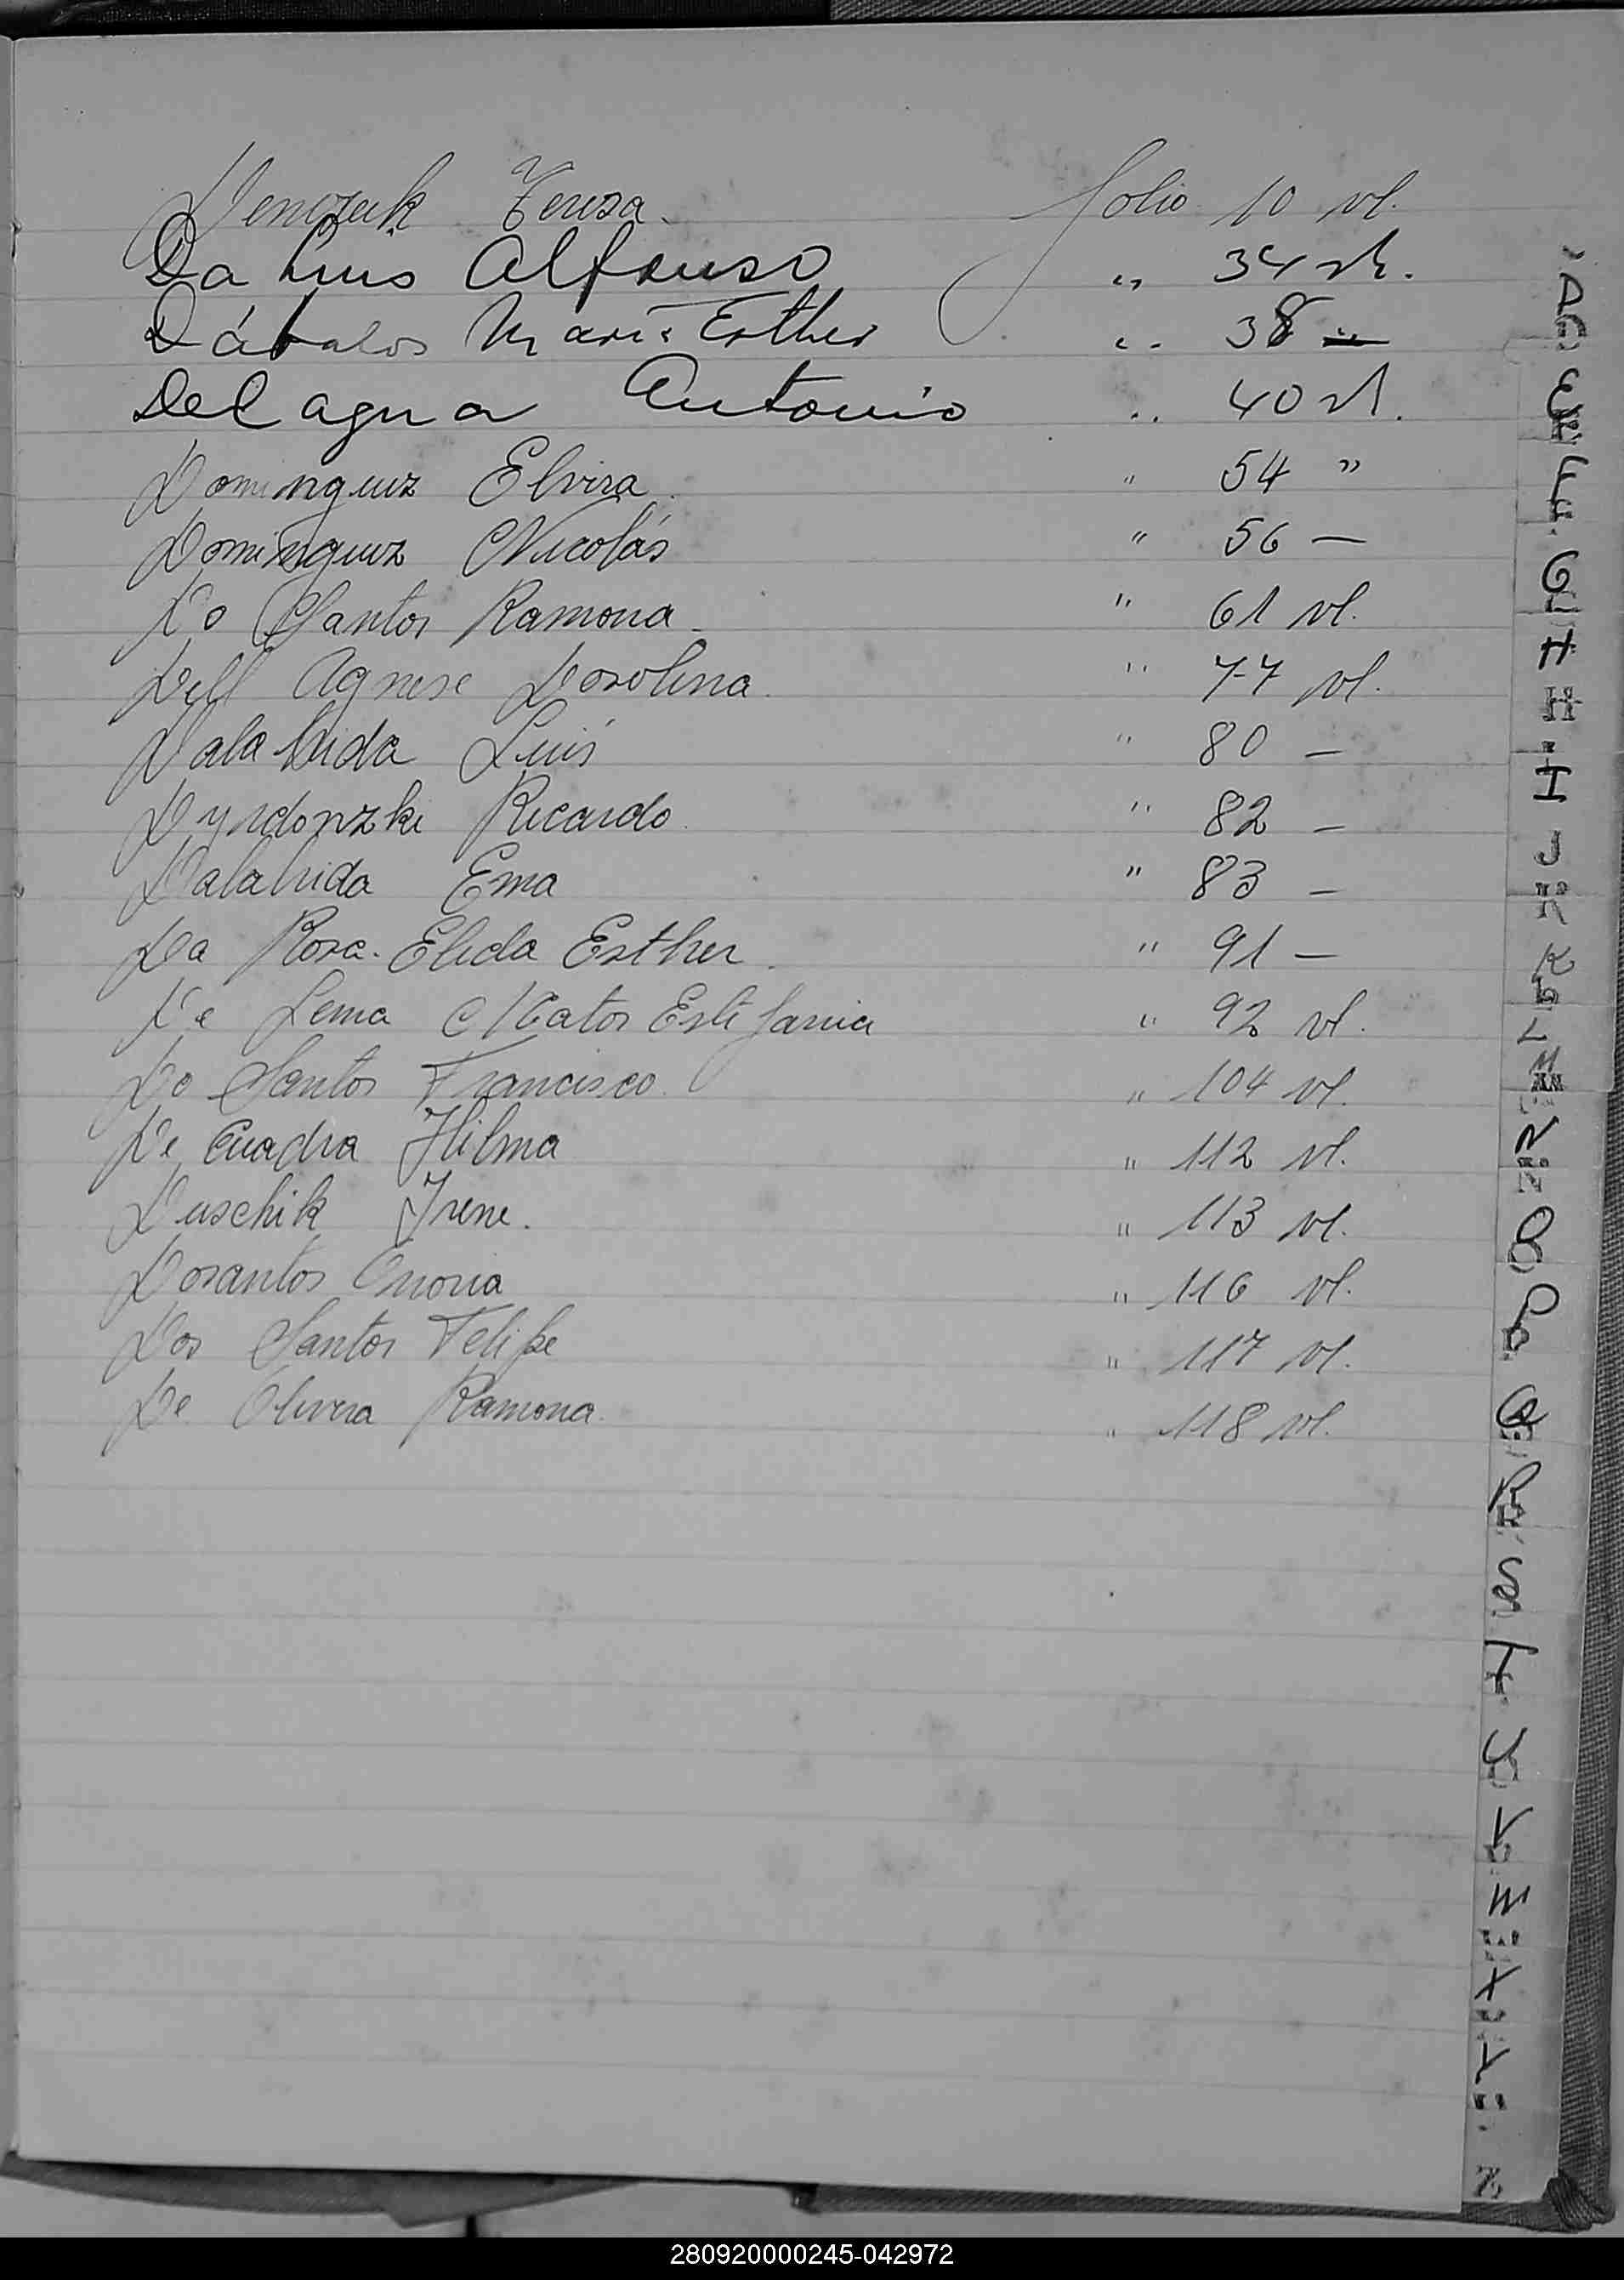 Denczuk Teresa folio 10 vl.
Da Luis Alfonso " 34 vl.
Dábalos María Esther " 38 —
Del agua Antonio " 40 vl.
Dominguez Elvira " 54 "
Dominguez Nicolás " 56 —
Do Santos Ramona " 61 vl.
Dell Agnese Dosolina " 77 vl.
Dalabrida Luis " 80 —
Ricardo " 82 —
Dalabrida Ema " 83 —
Da Rosa Elida Esther " 91 —
De Lema Matos Estefania " 92 vl.
Do Santos Francisco " 104 vl.
De Cuadra Hilma " 112 vl.
Duschik Irene. " 113 vl.
Dosantos Onoria " 116 vl.
Dos Santos Felipe " 117 vl.
De Olivera Ramona " 118 vl.
D
E
F
G
H
I
J
K
L
M
N
O
P
Q
R
S
T
U
V
W
X
Y
Z
280920000245-042972